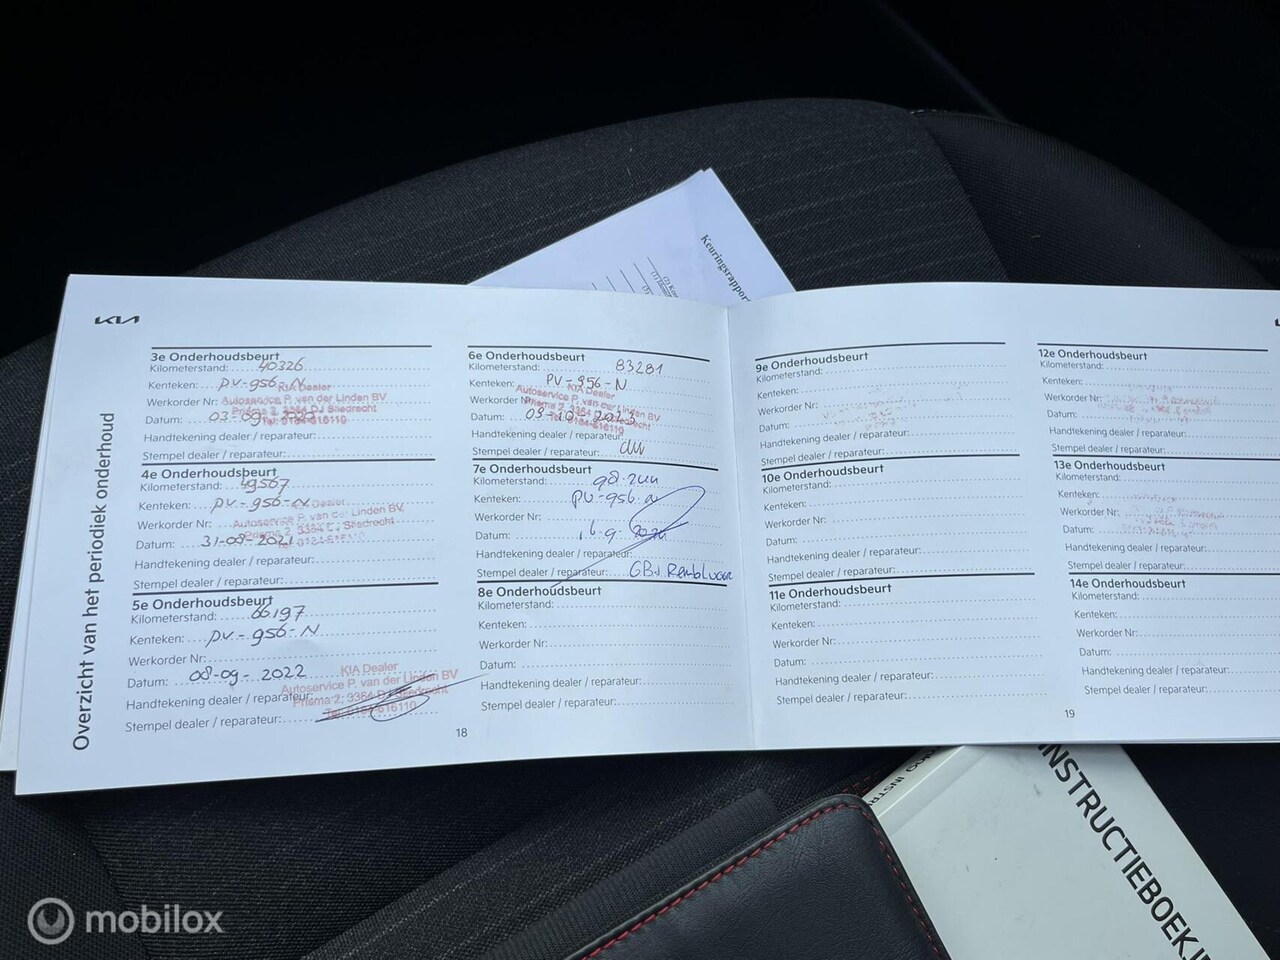 Keuringsrapport
KIA
Overzicht van het periodiek onderhoud
3e Onderhoudsbeurt
Kilometerstand: 40326
Kenteken: PV-956-N
KIA Dealer
Werkorder Nr:
Autoservice P. van der Linden BV
Prisma 2, 3364 DJ Sliedrecht
Datum: 03-09-
Tel: 0184-616110
Handtekening dealer / reparateur:
Stempel dealer / reparateur:
4e Onderhoudsbeurt
Kilometerstand: 49567
Kenteken: PV-956-N
Dealer
Werkorder Nr:
Autoservice P. van der Linden BV.
Datum: 31-08-2021
Handtekening dealer / reparateur:
Stempel dealer / reparateur:
5e Onderhoudsbeurt
Kilometerstand: 66197
Kenteken: PV-956-N
Werkorder Nr:
Datum: 08-09-2022
KIA Dealer
Autoservice P. van der Linden BV
Prisma 2, 3364 DJ Sliedrecht
Handtekening dealer / reparateur:
Stempel dealer / reparateur:
18
6e Onderhoudsbeurt
Kilometerstand: 83281
Kenteken: PV-956-N
KIA Dealer
Werkorder Nr:
Autoservice P. van der Linden BV
Prisma 2, 3364 DJ Sliedrecht
Datum: 03-10-2023
Tel: 0184-616110
Handtekening dealer / reparateur:
Stempel dealer / reparateur:
7e Onderhoudsbeurt
Kilometerstand:
Kenteken: PV-956-N
Werkorder Nr:
Datum: 16-9-
Handtekening dealer / reparateur:
Stempel dealer / reparateur:
8e Onderhoudsbeurt
Kilometerstand:
Kenteken:
Werkorder Nr:
Datum:
Handtekening dealer / reparateur:
Stempel dealer / reparateur:
9e Onderhoudsbeurt
Kilometerstand:
Kenteken:
Werkorder Nr:
Datum:
Handtekening dealer / reparateur:
Stempel dealer / reparateur:
10e Onderhoudsbeurt
Kilometerstand:
Kenteken:
Werkorder Nr:
Datum:
Handtekening dealer / reparateur:
Stempel dealer / reparateur:
11e Onderhoudsbeurt
Kilometerstand:
Kenteken:
Werkorder Nr:
Datum:
Handtekening dealer / reparateur:
Stempel dealer / reparateur:
12e Onderhoudsbeurt
Kilometerstand:
Kenteken:
Werkorder Nr:
Datum:
Handtekening dealer / reparateur:
Stempel dealer / reparateur:
13e Onderhoudsbeurt
Kilometerstand:
Kenteken:
Werkorder Nr:
Datum:
Handtekening dealer / reparateur:
Stempel dealer / reparateur:
14e Onderhoudsbeurt
Kilometerstand:
Kenteken:
Werkorder Nr:
Datum:
Handtekening dealer / reparateur:
Stempel dealer / reparateur:
19
INSTRUCTIEBOEKJE
mobilox